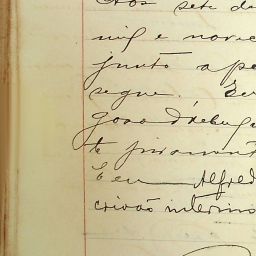 Aos sete de
mil e nove
junto a pe
segue. Eu
te juramento
Eu Alfred
crivão interino